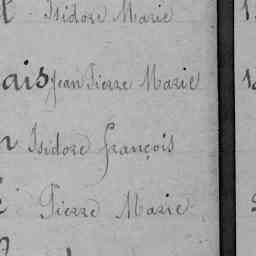 Isidore Marie
ais Jean Pierre Marie
Isidore François
Pierre Marie